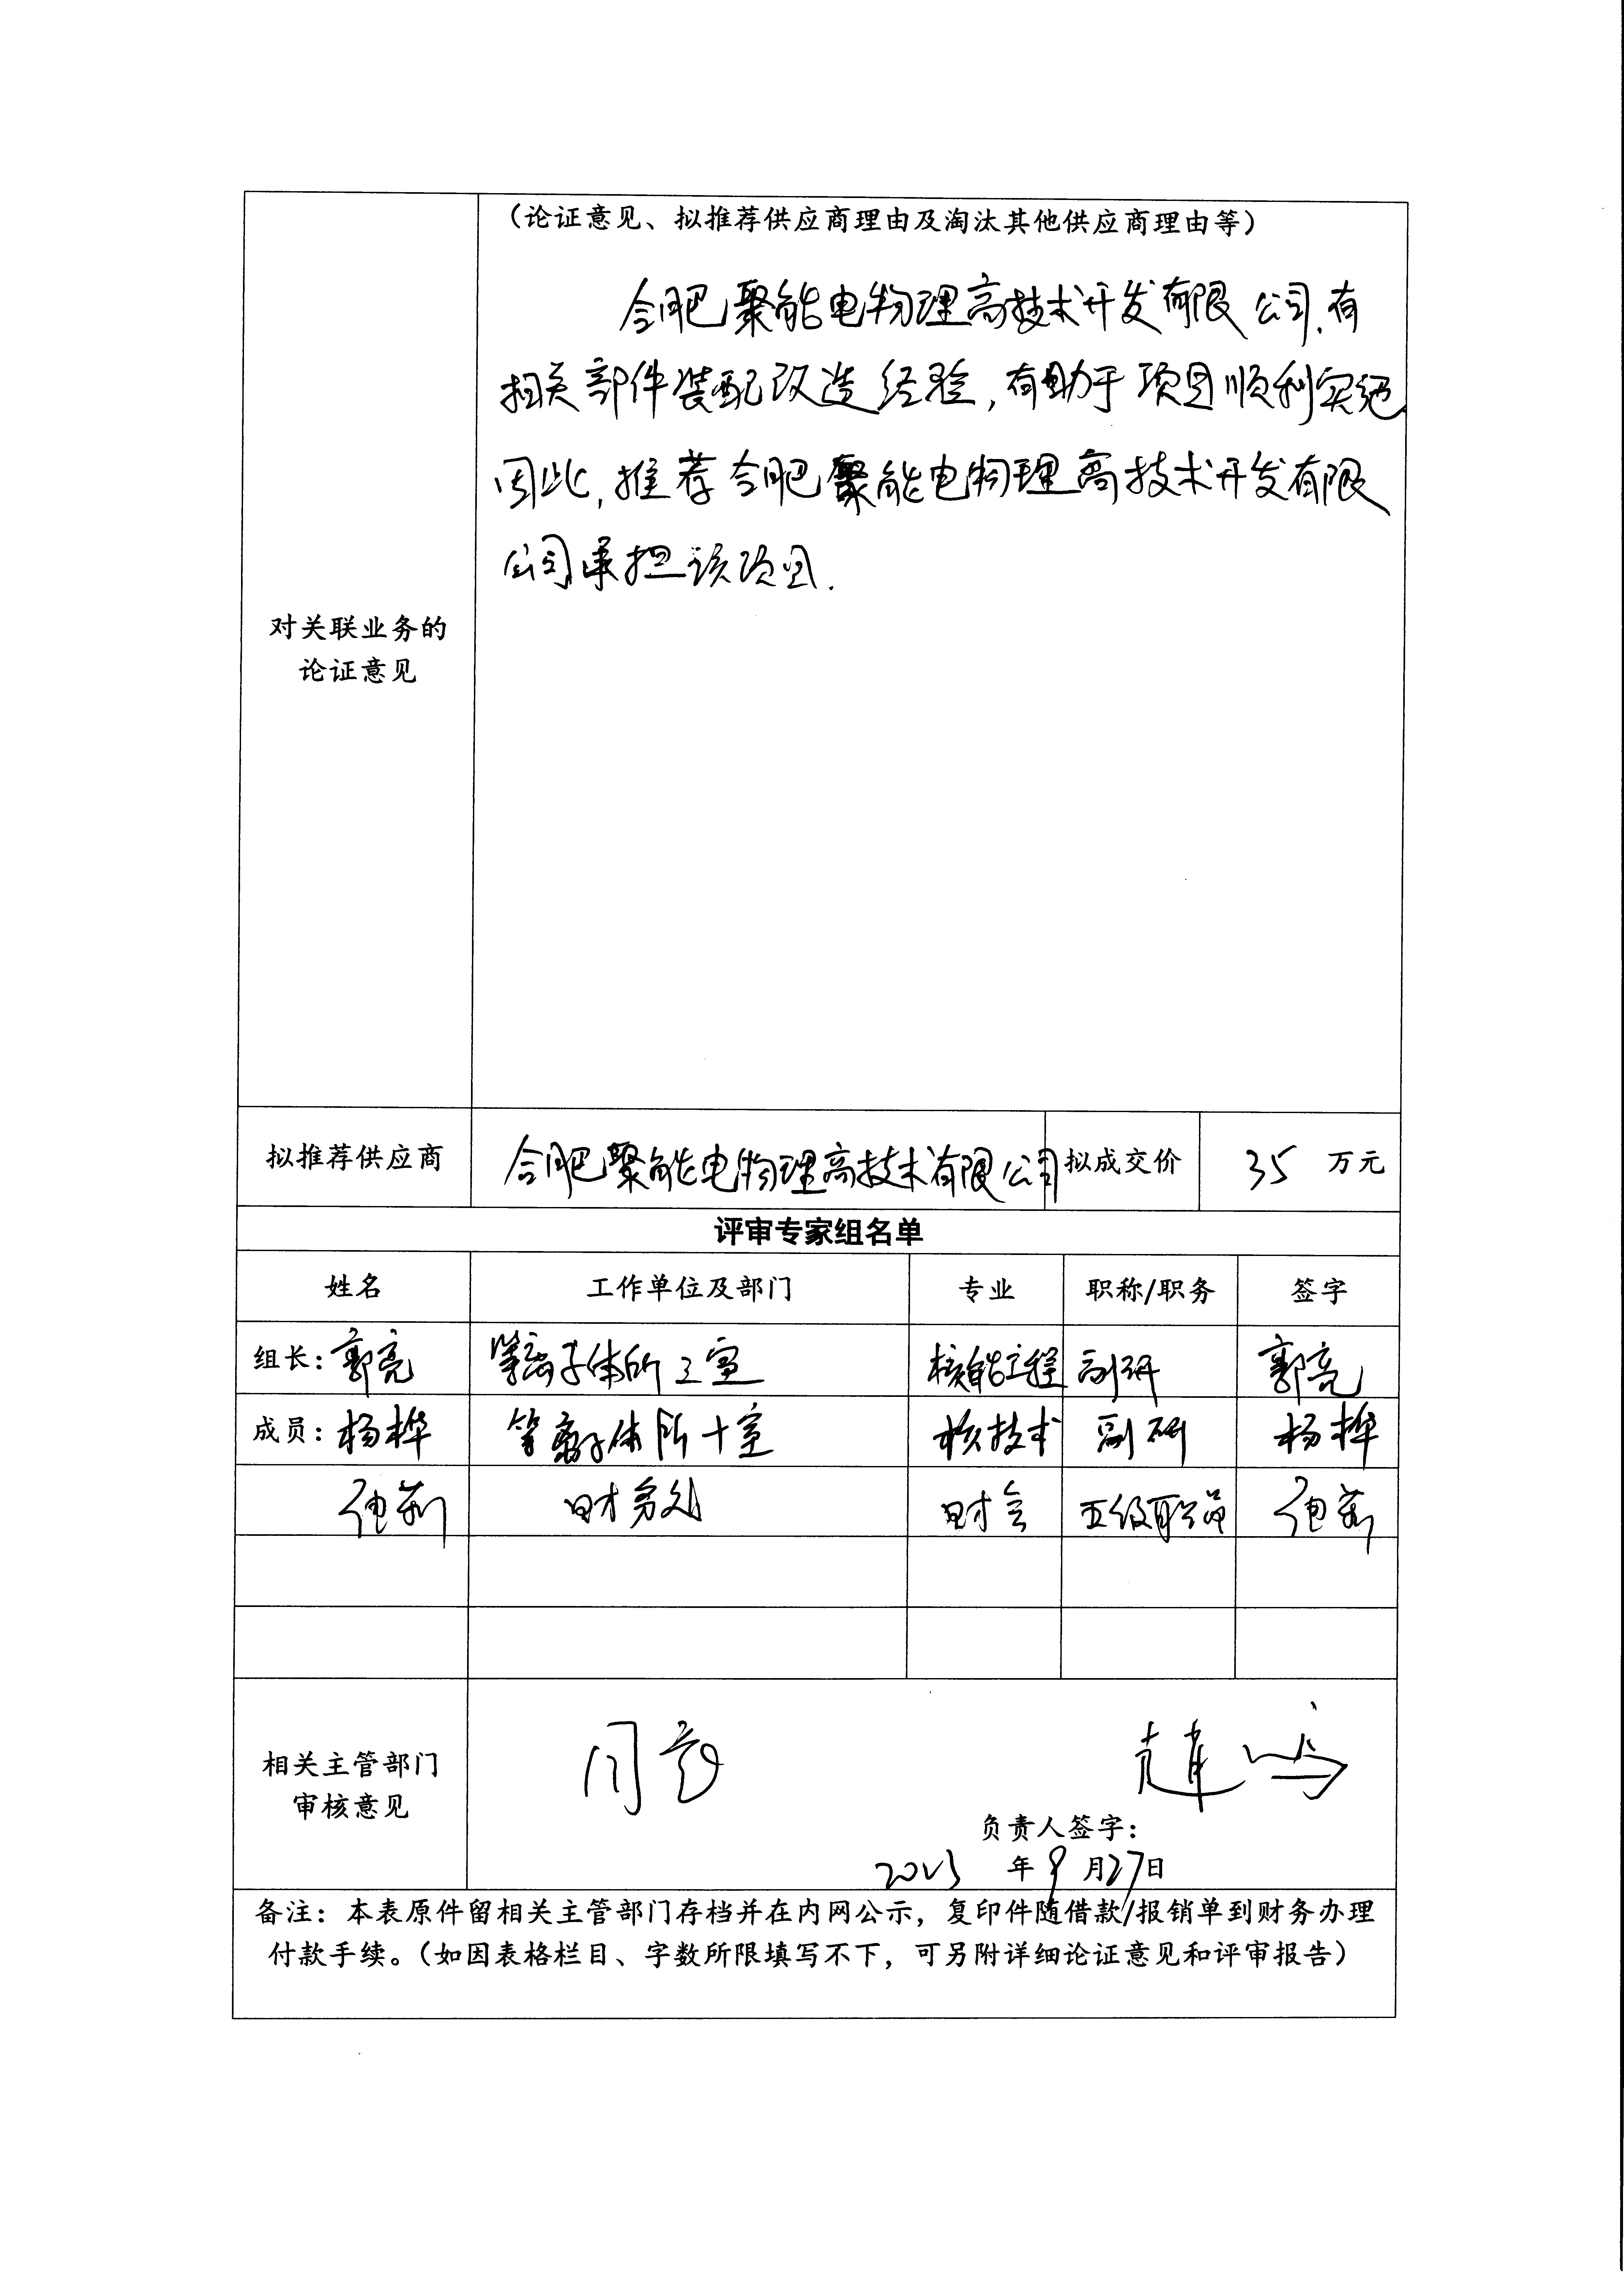 （论证意见、拟推荐供应商理由及淘汰其他供应商理由等）
合肥聚能电物理高技术开发有限公司,有
相关部件装配改造经验,有助于项目顺利实施
因此,推荐合肥聚能电物理高技术开发有限
公司承担该项目.
对关联业务的
论证意见
拟推荐供应商 合肥聚能电物理高技术有限公司 拟成交价 35 万元
评审专家组名单
姓名 工作单位及部门 专业 职称/职务 签字
组长: 郭亮 等离子体所 室 核能工程 副研 郭亮
成员: 杨桦 等离子体所十室 核技术 副研 杨桦
财务处 财会 五级职员
同意
相关主管部门
审核意见
负责人签字:
2023 年 9 月 27 日
备注：本表原件留相关主管部门存档并在内网公示，复印件随借款/报销单到财务办理
付款手续。（如因表格栏目、字数所限填写不下，可另附详细论证意见和评审报告）